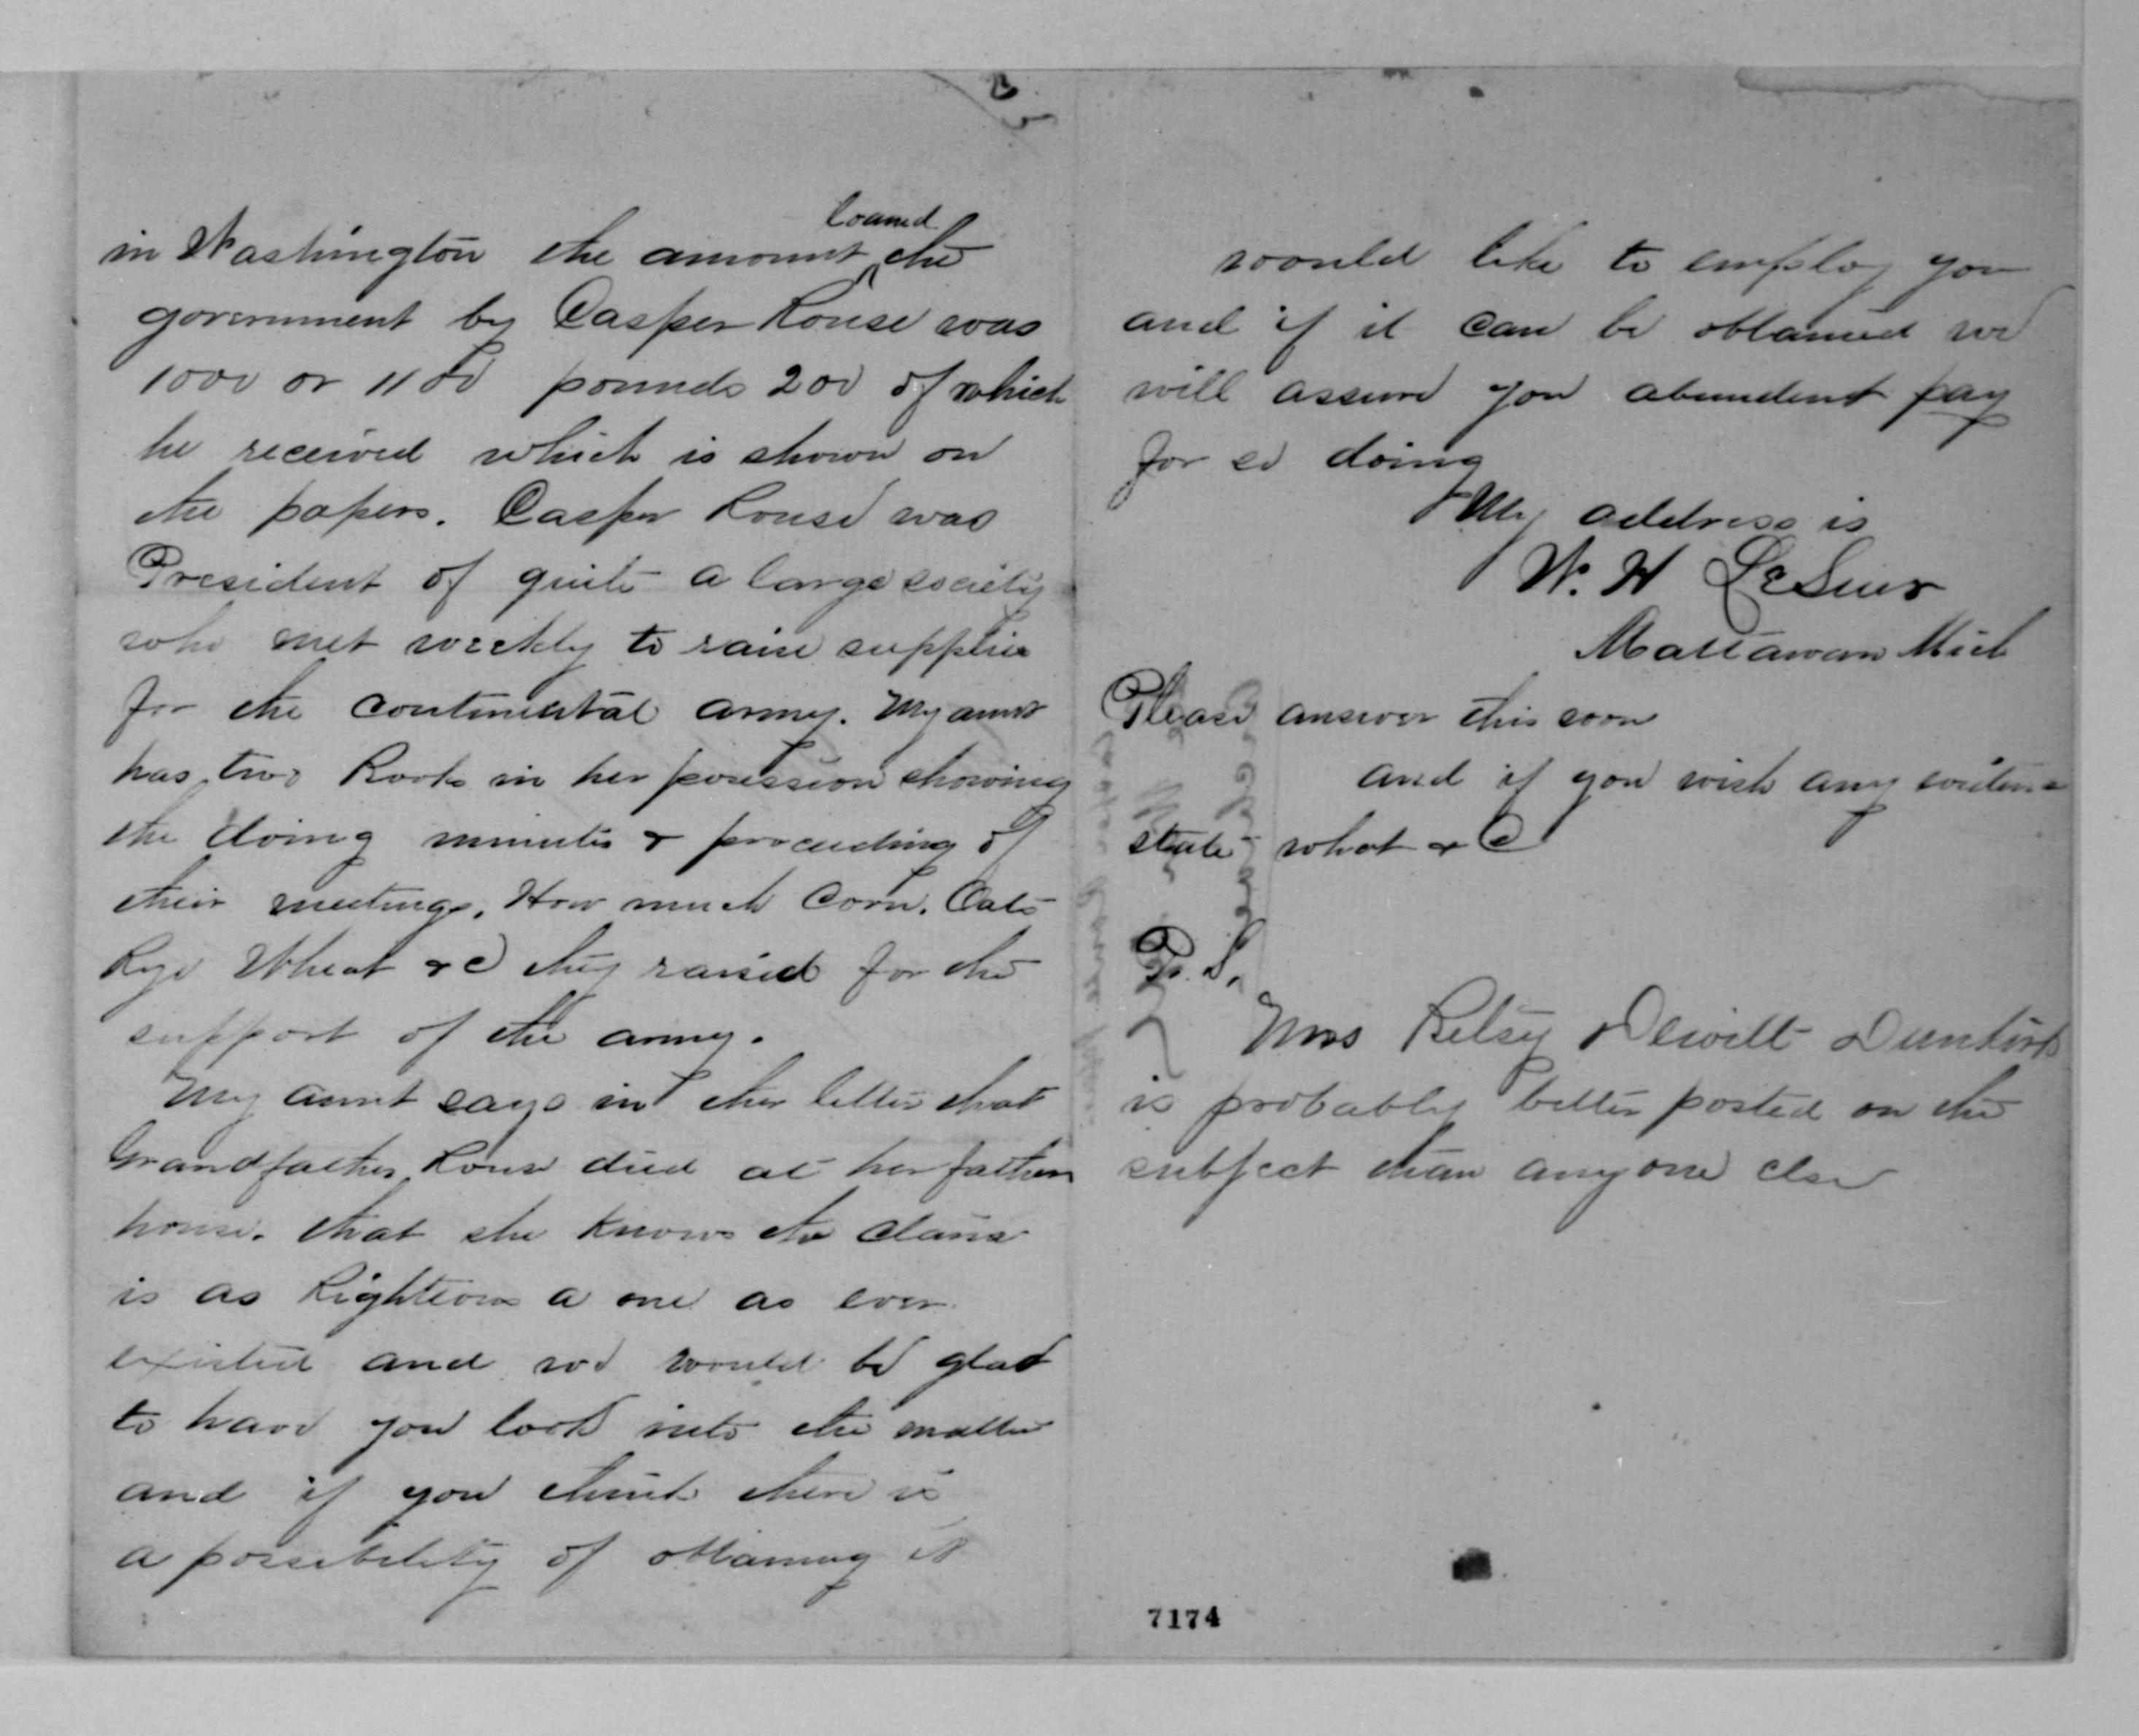 in Washington the amount loaned the
government by Casper Rouse was
1000 or 1100 pounds 200 of which
he received which is shown on
the papers. Casper Rouse was
President of quite a large society
who met weekly to raise supplies
for the continental army. My aunt
has two Books in her posession showing
the doing minutes & proceeding of
their meetings. How much Corn. Oats
Rye Wheat &c they raised for the
support of the army.
My aunt says in her letter that
Grandfather Rouse died at her fathers
house. that she knows the claim
is as Righteous a one as ever
existed and we would be glad
to have you look into the matter
and if you think there is
a possibility of obtaining it
would like to employ you
and if it can be obtained we
will assure you abundent pay
for so doing
My address is
W. H LeSuer
Mattawan Mich
Please answer this soon
and if you wish any evidence
state what &C
P. S.
Mrs Betsy Dewitt Dunkirk
is probably better posted on the
subject than any one else
7174